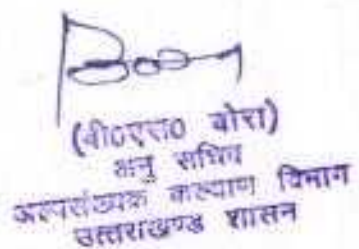 (बी0एस0 बोरा)
अनु सचिव
अल्पसंख्यक कल्याण विभाग
उत्तराखण्ड शासन